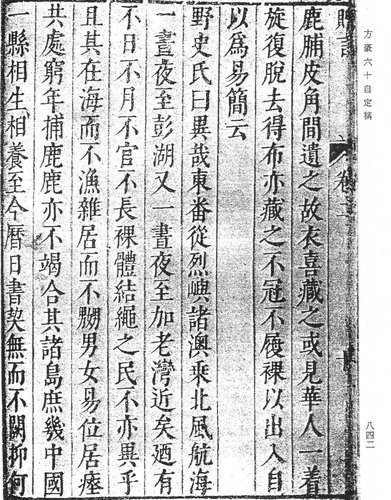 方豪六十自定稿
八四二
贈言 卷
鹿脯皮角間遺之故衣喜藏之或見華人一着
旋復脫去得布亦藏之不冠不履裸以出入自
以爲易簡云
野史氏曰異哉東番從烈嶼諸澳乘北風航海
一晝夜至彭湖又一晝夜至加老灣近矣迺有
不日不月不官不長裸體結繩之民不亦異乎
且其在海而不漁雜居而不嬲男女易位居瘞
共處窮年捕鹿鹿亦不竭合其諸島庶幾中國
一縣相生相養至今曆日書契無而不闕抑何